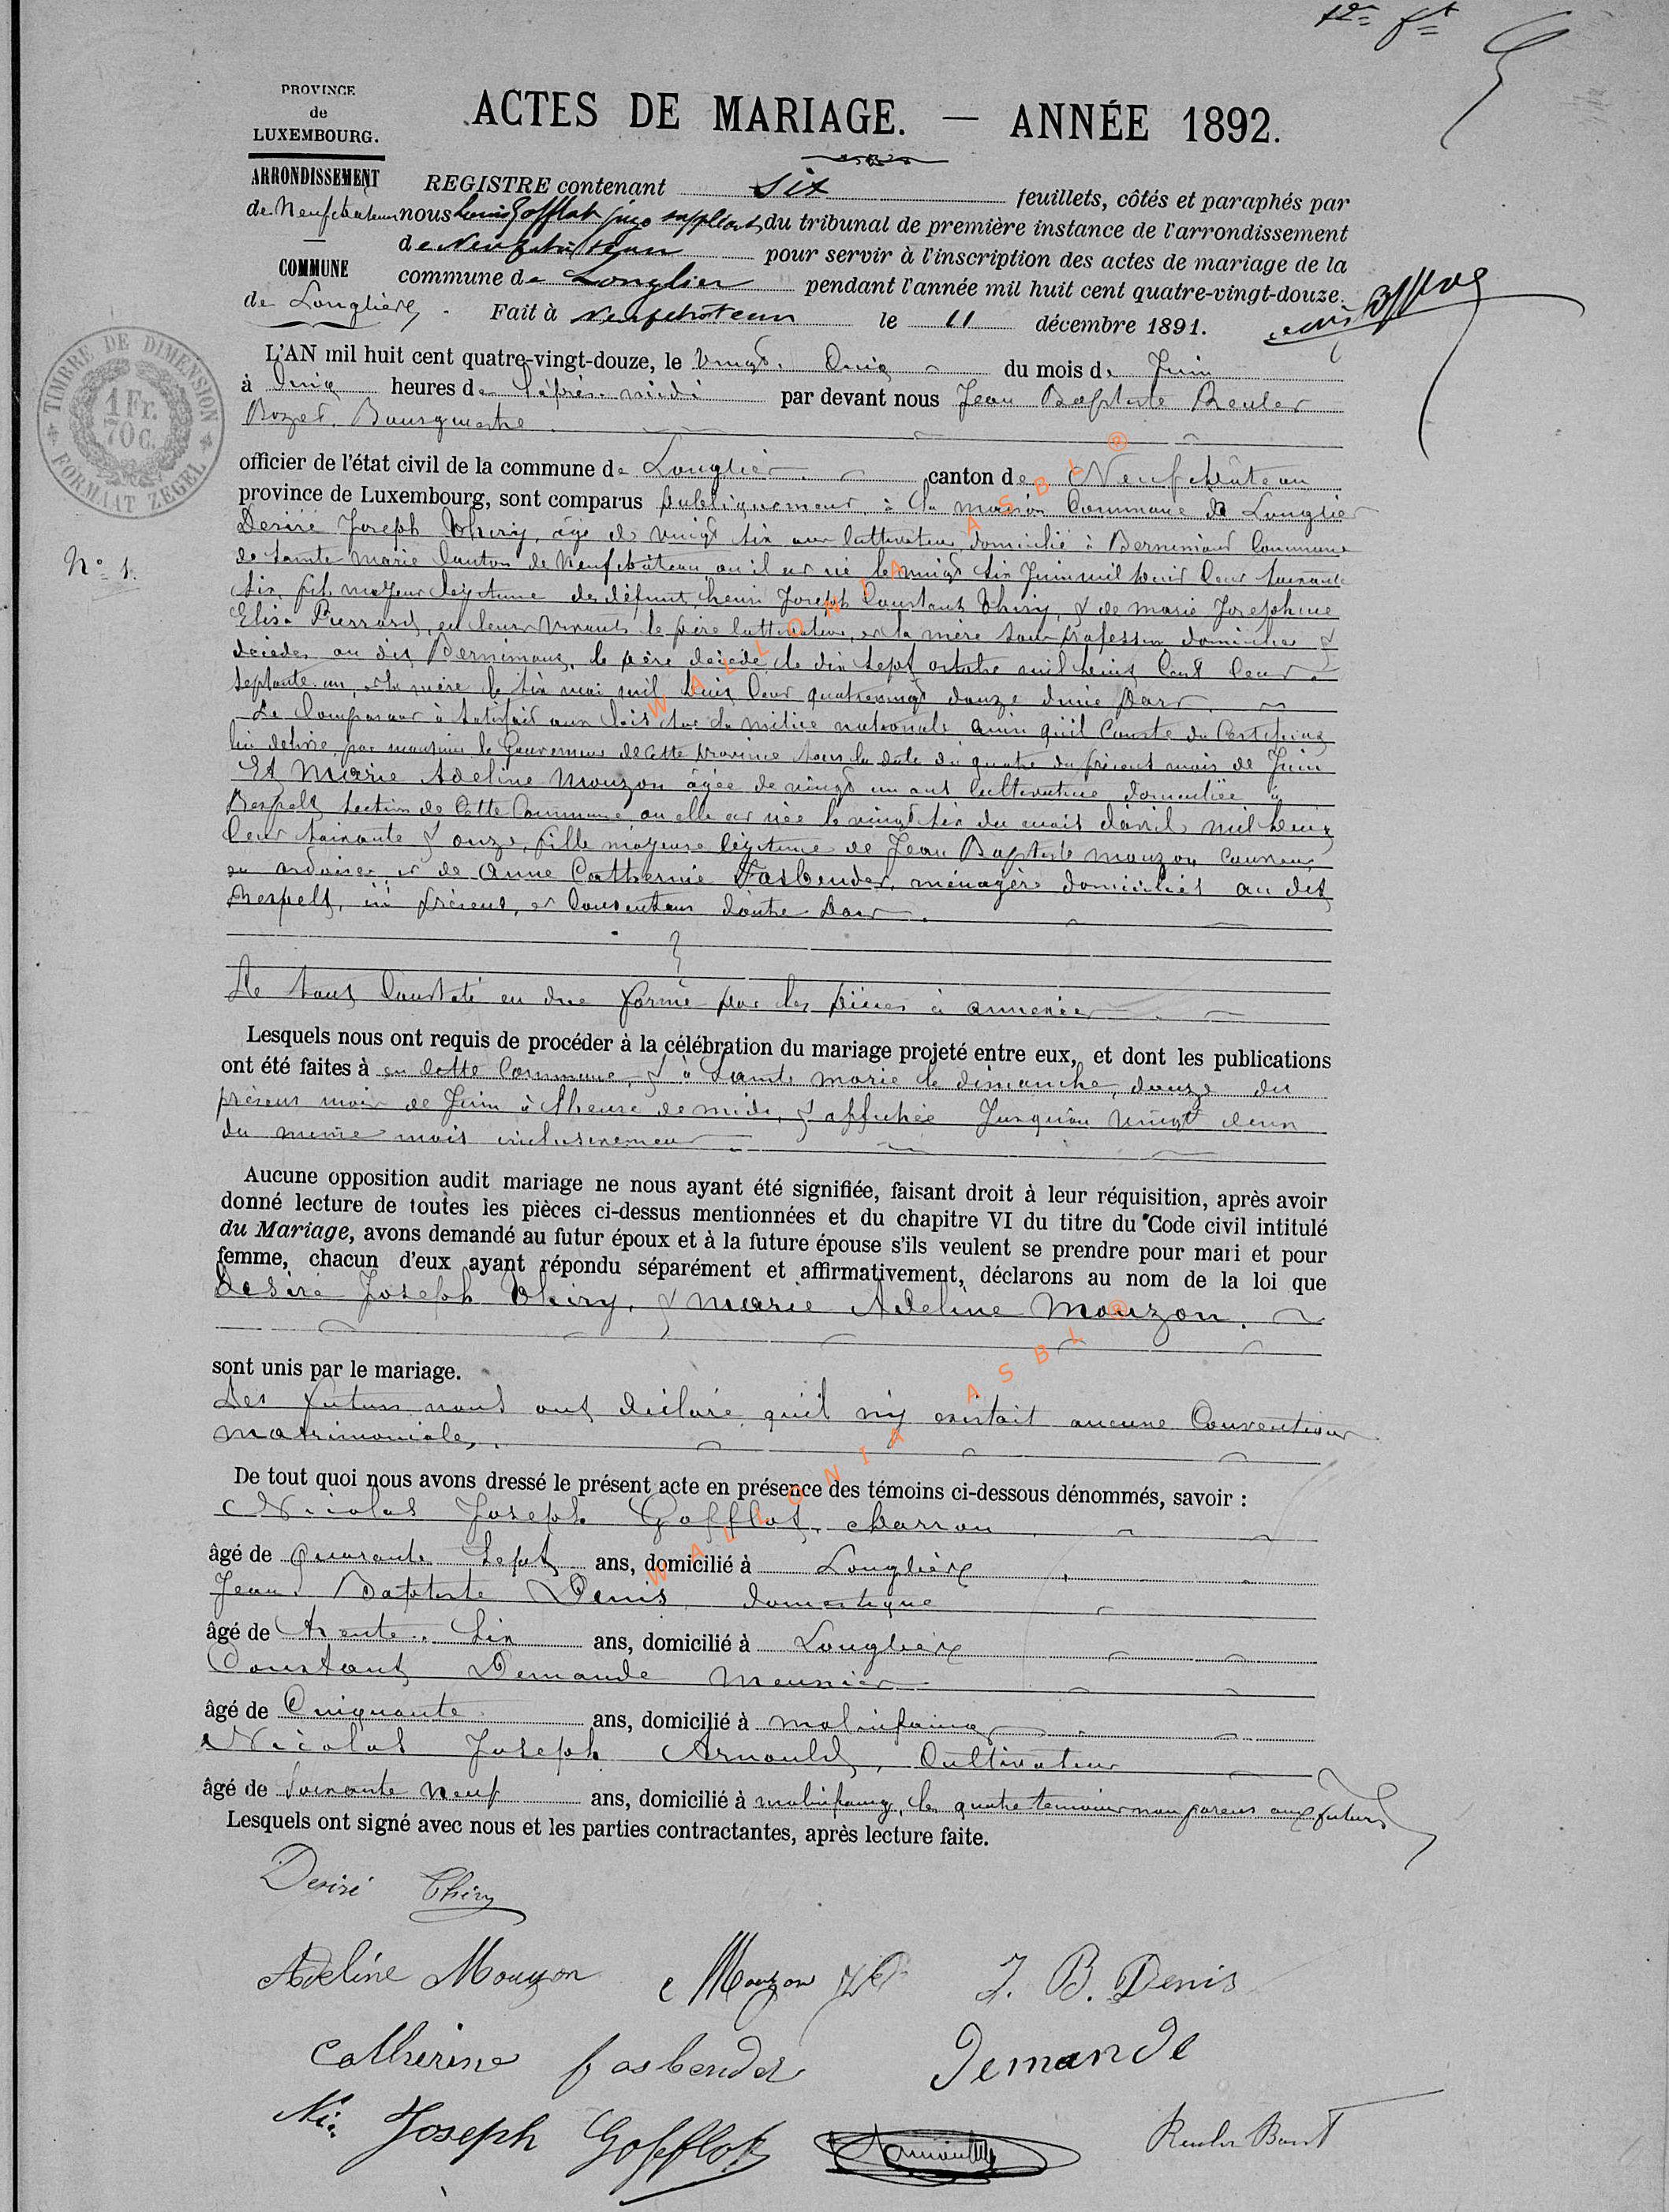 1er ft
PROVINCE
de
LUXEMBOURG.
ACTES DE MARIAGE. — ANNÉE 1892.
ARRONDISSEMENT
de Neufchateau
COMMUNE
de Longlier
REGISTRE contenant six feuillets, côtés et paraphés par
nous Louis Gofflot juge suppléant du tribunal de première instance de l'arrondissement
de Neufchâteau pour servir à l'inscription des actes de mariage de la
commune de Longlier pendant l'année mil huit cent quatre-vingt-douze.
Fait à Neufchâteau le 11 décembre 1891.
TIMBRE DE DIMENSION
1 Fr.
70 C.
FORMAAT ZEGEL
L'AN mil huit cent quatre-vingt-douze, le vingt. Cinq du mois de Juin
à Cinq heures de l'après-midi par devant nous Jean Baptiste Reuler
Bozet. Bourgmestre
officier de l'état civil de la commune de Longlier canton de Neufchâteau
province de Luxembourg, sont comparus publiquement, à la maison Commune de Longlier
Nº 1.
Desiré Joseph Thiry, âgé de vingt six ans Cultivateur, domicilié à Bernimont Commune
de Sainte Marie Canton de Neufchâteau ou il est né le vingt six Juin mil huit Cent soixante
six, fils majeur legitime de défunt, henri Joseph Constant Thiry, & de marie Josephine
Elisa Pierrard, en leurs vivants le père Cultivateur, et la mère sans profession domiciliés &
décédés au dit Bernimont, le père décédé le dix sept octobre mil huit Cent
septante-un, et la mère le six mai mil huit Cent quatrevingt douze d'une Part.
Le Comparant à satisfait aux lois sur la milice nationale ainsi qu'il Conste du Certificat
lui delivré par monsieur le Gouverneur de cette province sous la date du quatre du présent mois de Juin
Et Marie Adeline Mouzon âgée de vingt un ans Cultivatrice domiciliée à
Respelt section de Cette Commune, ou elle est née le vingt six du mois d'avril mil huit
Cent soixante & onze, fille majeure légitime de Jean Baptiste mouzon Couvreur
en ardoises, et de Anne Catherine Fasbender, ménagère domiciliés au dit
Respelt, ici présent, et Consentans d'autre Part.
Le tout Constaté en due forme par les pièces à annexées
Lesquels nous ont requis de procéder à la célébration du mariage projeté entre eux, et dont les publications
ont été faites à en Cette Commune, & à Sainte Marie le dimanche, douze du
présent mois de Juin à l'heure de midi, & affichée Jusqu'au vingt deux
du même mois inclusivement
Aucune opposition audit mariage ne nous ayant été signifiée, faisant droit à leur réquisition, après avoir
donné lecture de toutes les pièces ci-dessus mentionnées et du chapitre VI du titre du Code civil intitulé
du Mariage, avons demandé au futur époux et à la future épouse s'ils veulent se prendre pour mari et pour
femme, chacun d'eux ayant répondu séparément et affirmativement, déclarons au nom de la loi que
Desiré Joseph Thiry, & Marie Adeline Mouzon.
sont unis par le mariage.
Les futurs nous ont déclaré qu'il n'y existait aucune Convention
matrimoniale,
De tout quoi nous avons dressé le présent acte en présence des témoins ci-dessous dénommés, savoir :
Nicolas Joseph Gofflot, charron
âgé de Quarante sept ans, domicilié à Longlier
Jean Baptiste Denis domestique
âgé de trente-six ans, domicilié à Longlier
Constant Demande meunier
âgé de Cinquante ans, domicilié à molinfaing
Nicolas Joseph Arnould, Cultivateur
âgé de soixante neuf ans, domicilié à molinfaing, les quatre temoins non parens aux futurs
Lesquels ont signé avec nous et les parties contractantes, après lecture faite.
Desiré Thiry
Adeline Mouzon Mouzon J. B. Denis
Catherine fasbender Demande
Nic. Joseph Gofflot Arnould Reuler Bozet
WALLONIA ASBL ®
WALLONIA ASBL ®